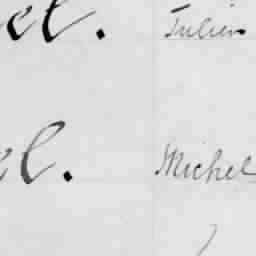 el. Julien
el. Michel